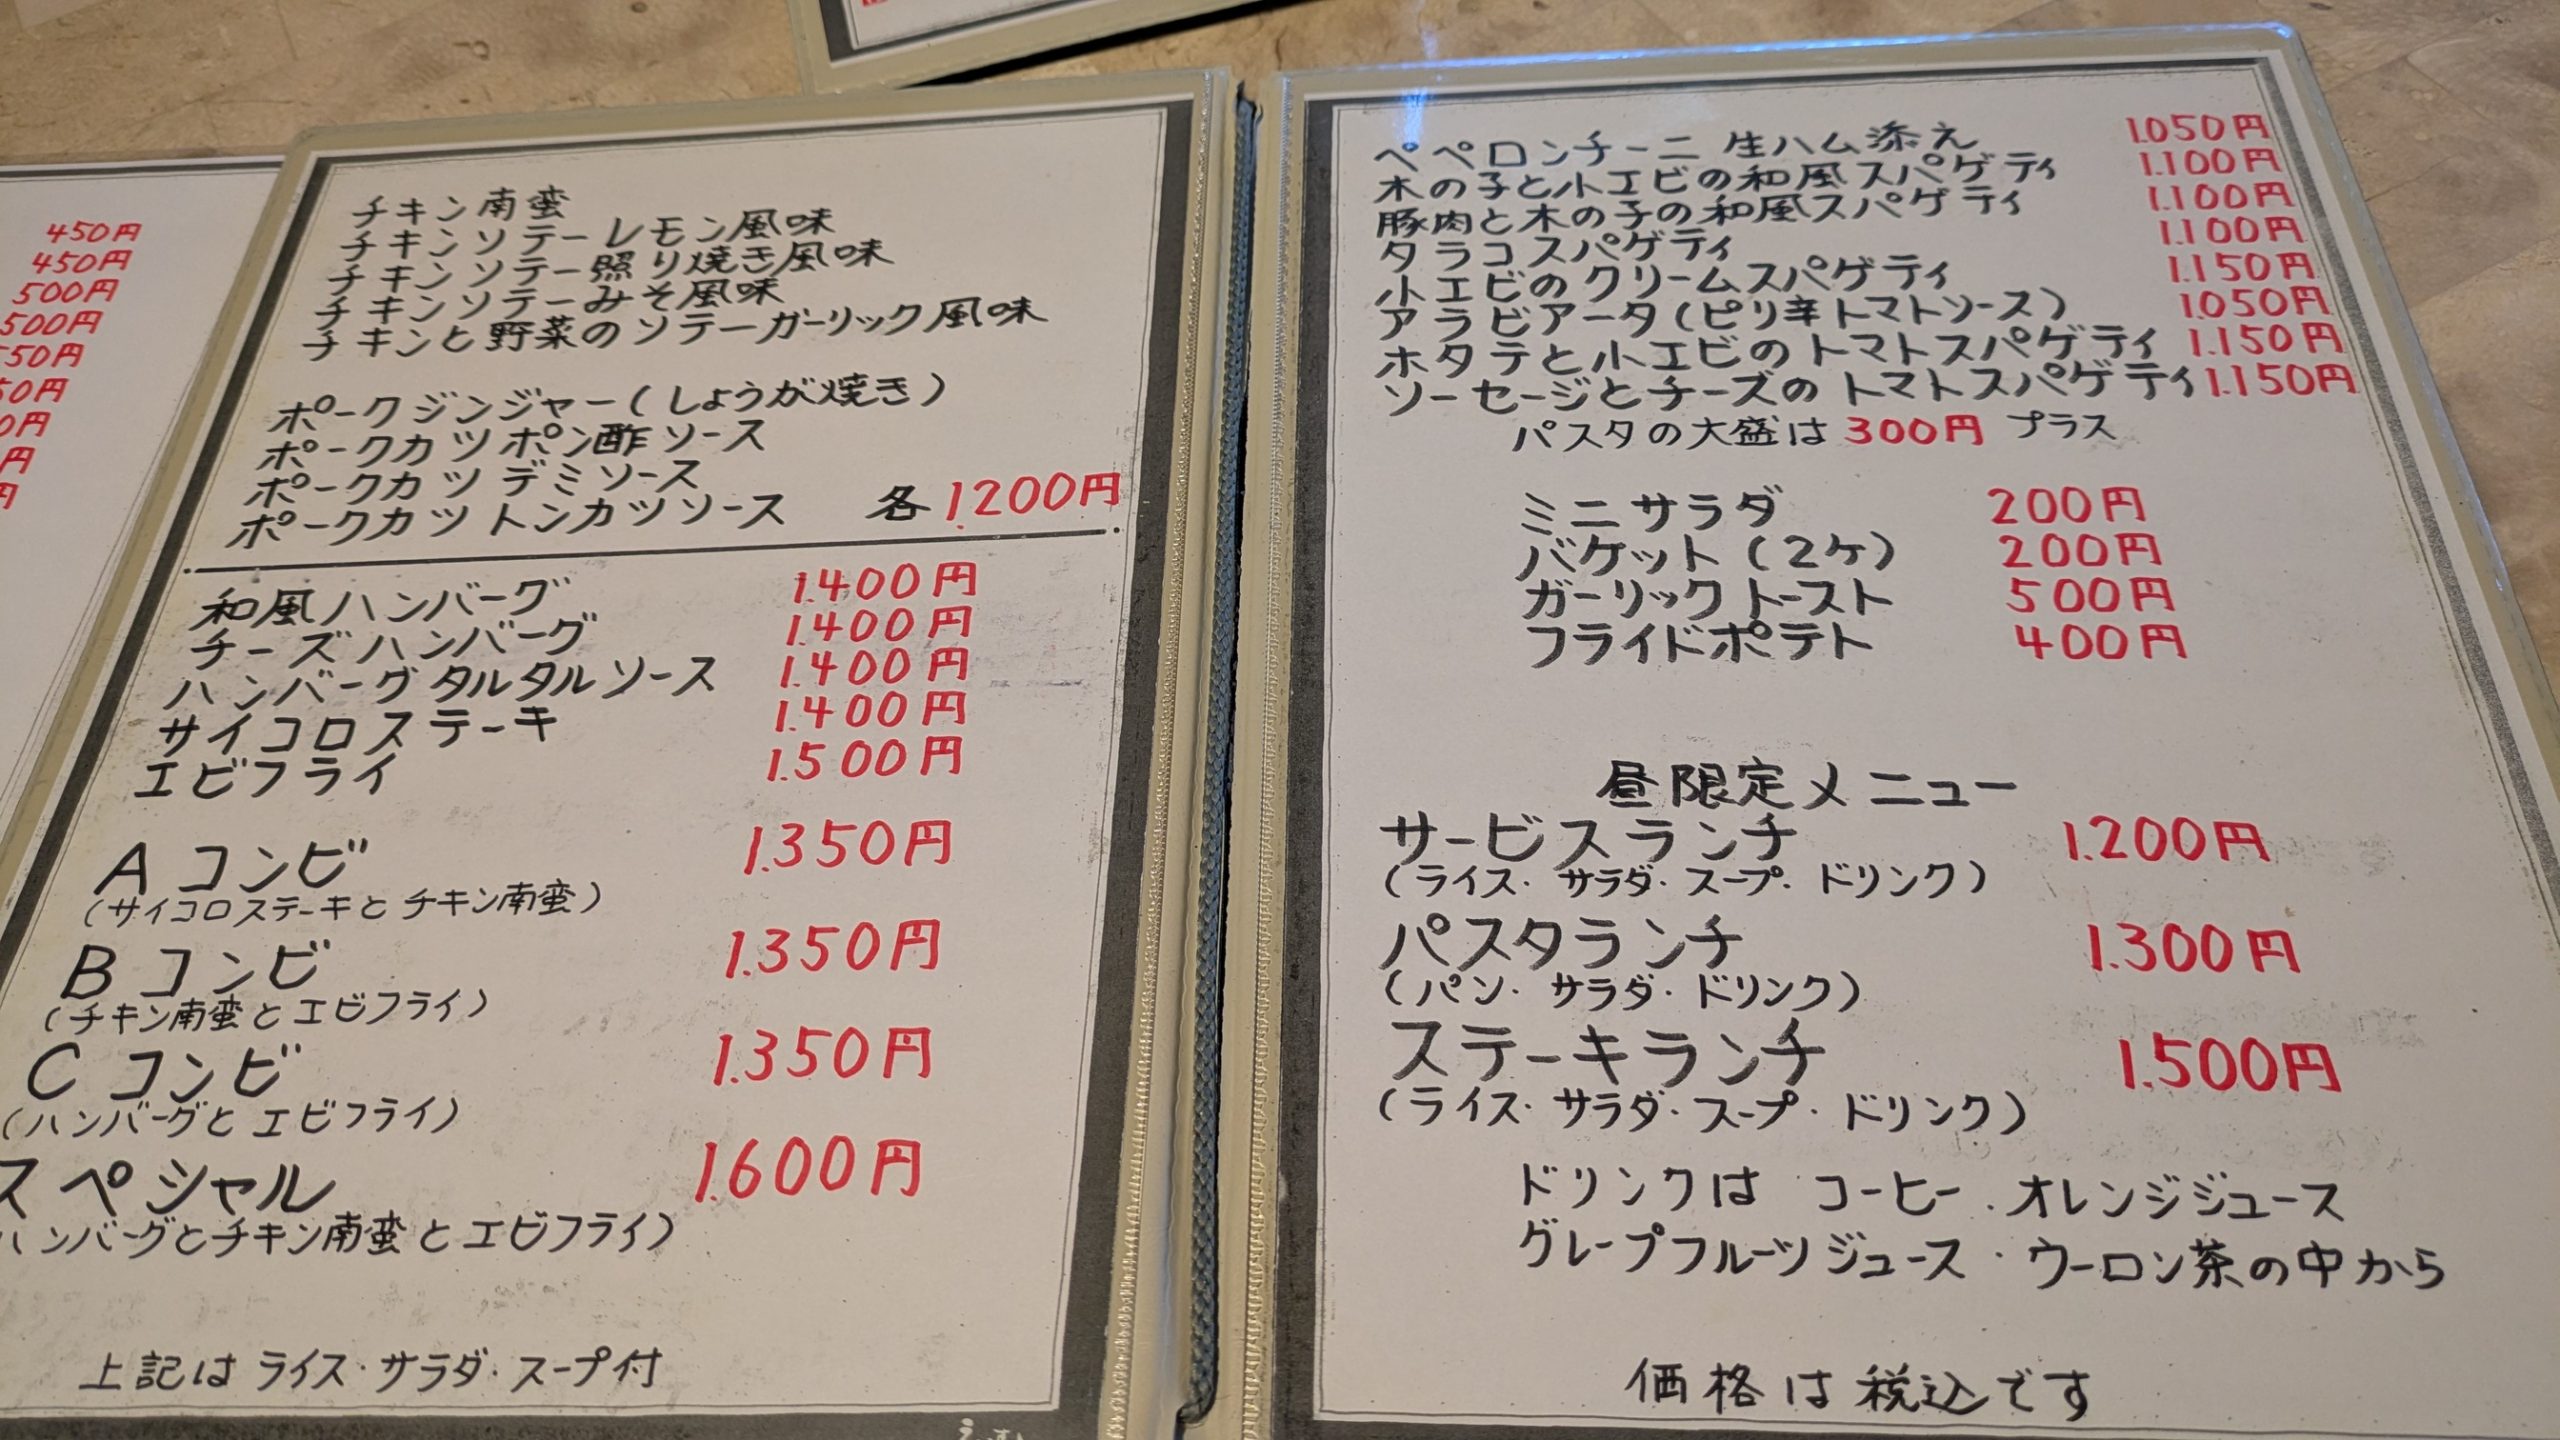 450円
450円
500円
500円
50円
50円
0円
円
円
チキン南蛮
チキンソテーレモン風味
チキンソテー照り焼き風味
チキンソテーみそ風味
チキンと野菜のソテーガーリック風味
ポークジンジャー(しょうが焼き)
ポークカツポン酢ソース
ポークカツデミソース
ポークカツトンカツソース 各1.200円
和風ハンバーグ 1.400円
チーズハンバーグ 1.400円
ハンバーグタルタルソース 1.400円
サイコロステーキ 1.400円
エビフライ 1.500円
Aコンビ 1.350円
(サイコロステーキとチキン南蛮)
Bコンビ 1.350円
(チキン南蛮とエビフライ)
Cコンビ 1.350円
(ハンバーグとエビフライ)
スペシャル 1.600円
ハンバーグとチキン南蛮とエビフライ)
上記はライス・サラダ・スープ付
ペペロンチーニ 生ハム添え 1.050円
木の子と小エビの和風スパゲティ 1.100円
豚肉と木の子の和風スパゲティ 1.100円
タラコスパゲティ 1.100円
小エビのクリームスパゲティ 1.150円
アラビアータ(ピリ辛トマトソース) 1.050円
ホタテと小エビのトマトスパゲティ 1.150円
ソーセージとチーズのトマトスパゲティ 1.150円
パスタの大盛は300円 プラス
ミニサラダ 200円
バケット(2ケ) 200円
ガーリックトースト 500円
フライドポテト 400円
昼限定メニュー
サービスランチ 1.200円
(ライス・サラダ・スープ・ドリンク)
パスタランチ 1.300円
(パン・サラダ・ドリンク)
ステーキランチ 1.500円
(ライス・サラダ・スープ・ドリンク)
ドリンクは コーヒー・オレンジジュース
グレープフルーツジュース・ウーロン茶の中から
価格は税込です